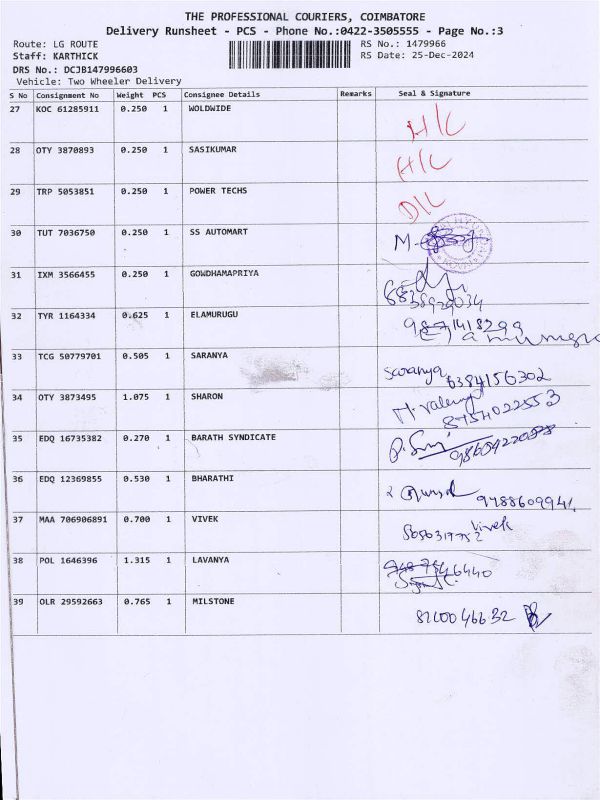 THE PROFESSIONAL COURIERS, COIMBATORE
Delivery Runsheet - PCS - Phone No.:0422-3505555 - Page No.:3
Route: LG ROUTE RS No.: 1479966
Staff: KARTHICK RS Date: 25-Dec-2024
DRS No.: DCJB147996603
Vehicle: Two Wheeler Delivery
S No Consignment No Weight PCS Consignee Details Remarks Seal & Signature
27 KOC 61285911 0.250 1 WOLDWIDE H/C
28 OTY 3870893 0.250 1 SASIKUMAR H/C
29 TRP 5053851 0.250 1 POWER TECHS D/L
30 TUT 7036750 0.250 1 SS AUTOMART
31 IXM 3566455 0.250 1 GOWDHAMAPRIYA
32 TYR 1164334 0.625 1 ELAMURUGU
33 TCG 50779701 0.505 1 SARANYA Saranya 6384156302
34 OTY 3873495 1.075 1 SHARON
35 EDQ 16735382 0.270 1 BARATH SYNDICATE
36 EDQ 12369855 0.530 1 BHARATHI 9788609941
37 MAA 706906891 0.700 1 VIVEK Vivek
38 POL 1646396 1.315 1 LAVANYA
39 OLR 29592663 0.765 1 MILSTONE